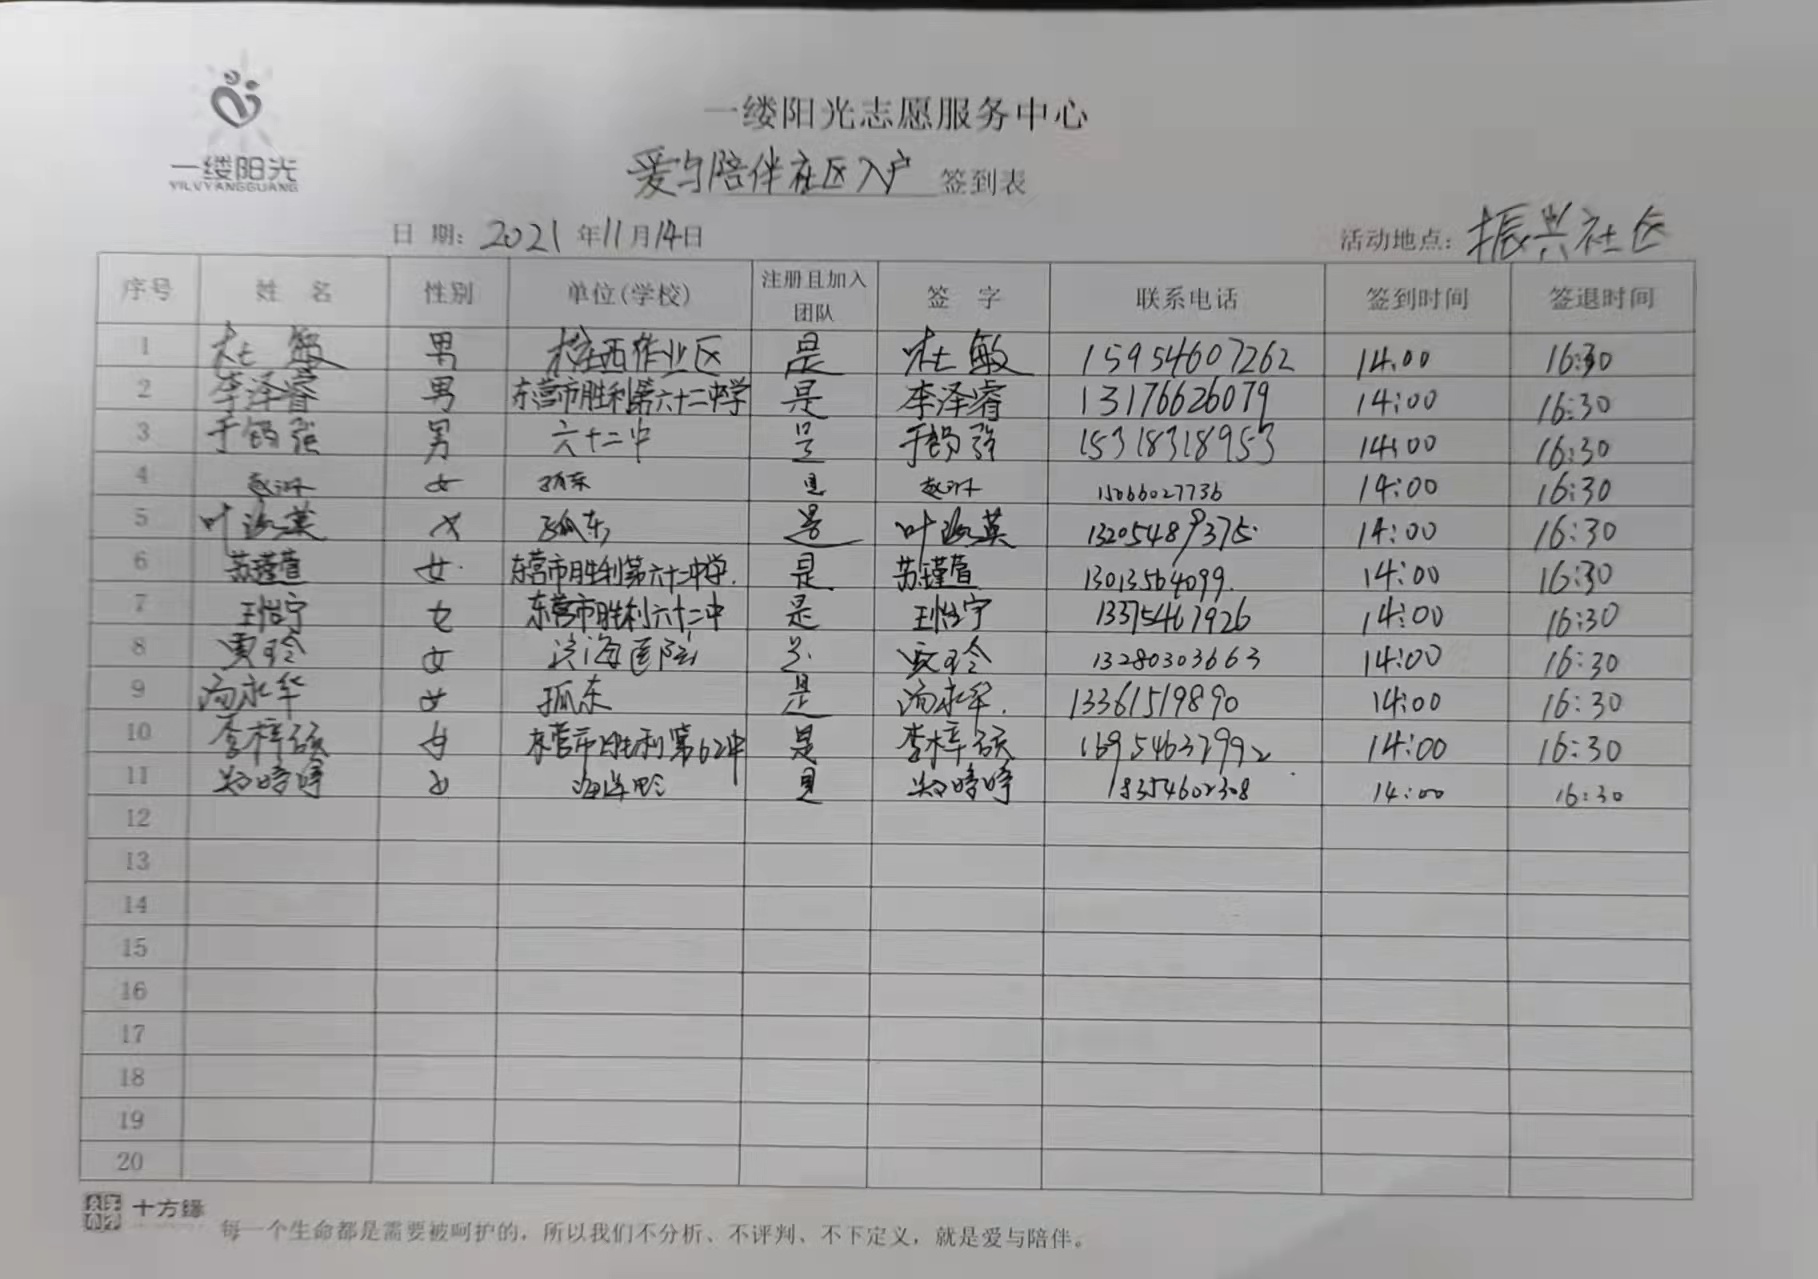 一缕阳光
YILVYANGGUANG
一缕阳光志愿服务中心
爱与陪伴社区入户 签到表
日 期: 2021 年 11 月 14 日 活动地点: 振兴社区
序号 姓 名 性别 单位(学校) 注册且加入团队 签 字 联系电话 签到时间 签退时间
1 杜敏 男 桩西作业区 是 杜敏 15954607262 14:00 16:30
2 李泽睿 男 东营市胜利第六十二中学 是 李泽睿 13176626079 14:00 16:30
3 男 六十二中 是 15318318953 14:00 16:30
4 女 孤东 是 15066027736 14:00 16:30
5 女 孤东 是 14:00 16:30
6 苏瑾萱 女 东营市胜利第六十二中学. 是 苏瑾萱 13013564099. 14:00 16:30
7 王怡宁 女 东营市胜利六十二中 是 王怡宁 14:00 16:30
8 贾玲 女 滨海医院 是 贾玲 13280303663 14:00 16:30
9 汤永华 女 孤东 是 汤永华. 13361519890 14:00 16:30
10 女 东营市胜利第62中 是 14:00 16:30
11 女 是 18354602308 14:00 16:30
12
13
14
15
16
17
18
19
20
十方缘
每一个生命都是需要被呵护的，所以我们不分析、不评判、不下定义，就是爱与陪伴。